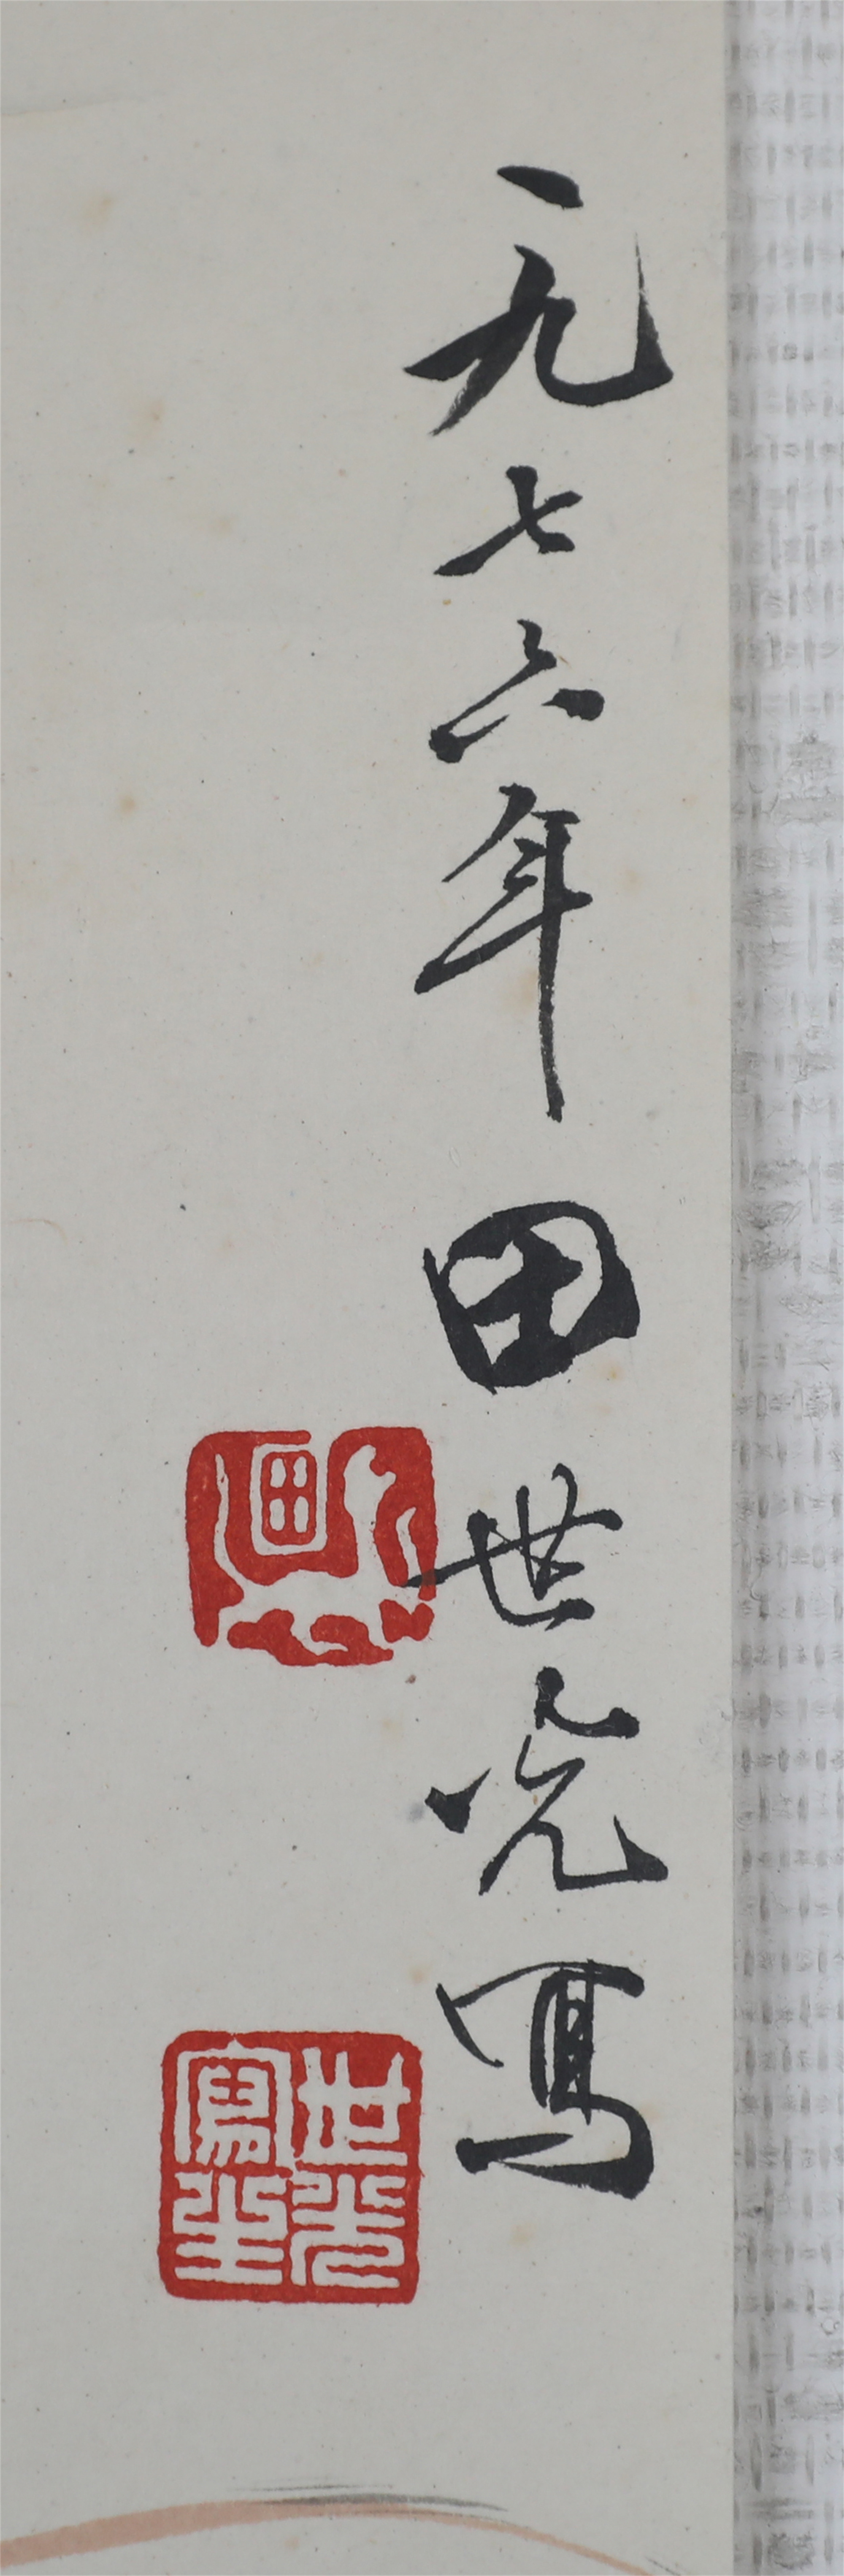 一九七六年田世光寫
世光寫生